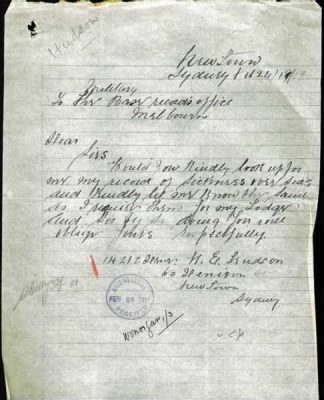 Hudson
New Town
Sydney
Military
To The Base records office
Melbourn
Dear
Sirs
Would you Kindly look up for
me my record of Sickness over Seas
and Kindly let me Know the same
as I require them for my Lodge
and For by so doing you will
oblige yours respectfully
14212 W. E. Hudson
60 Denison St
New Town
Sydney
RECEIVED